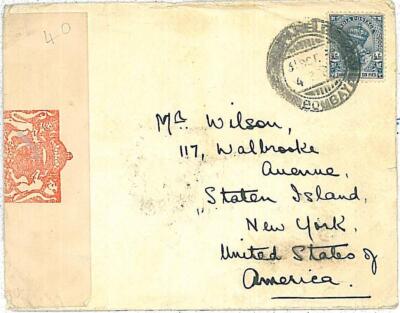 40
BOMBAY
Mr Wilson,
117, Walbrooke
Avenue,
Staten Island,
New York,
United States of
America.